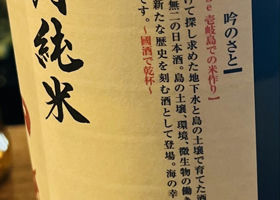 純米
吟のさと
se 壱岐島での米作り
けて探し求めた地下水と島の土壌で育てた酒
無二の日本酒。島の土壌、環境、微生物の働き
新たな歴史を刻む酒として登場。海の幸
です。
〜國酒で乾杯〜